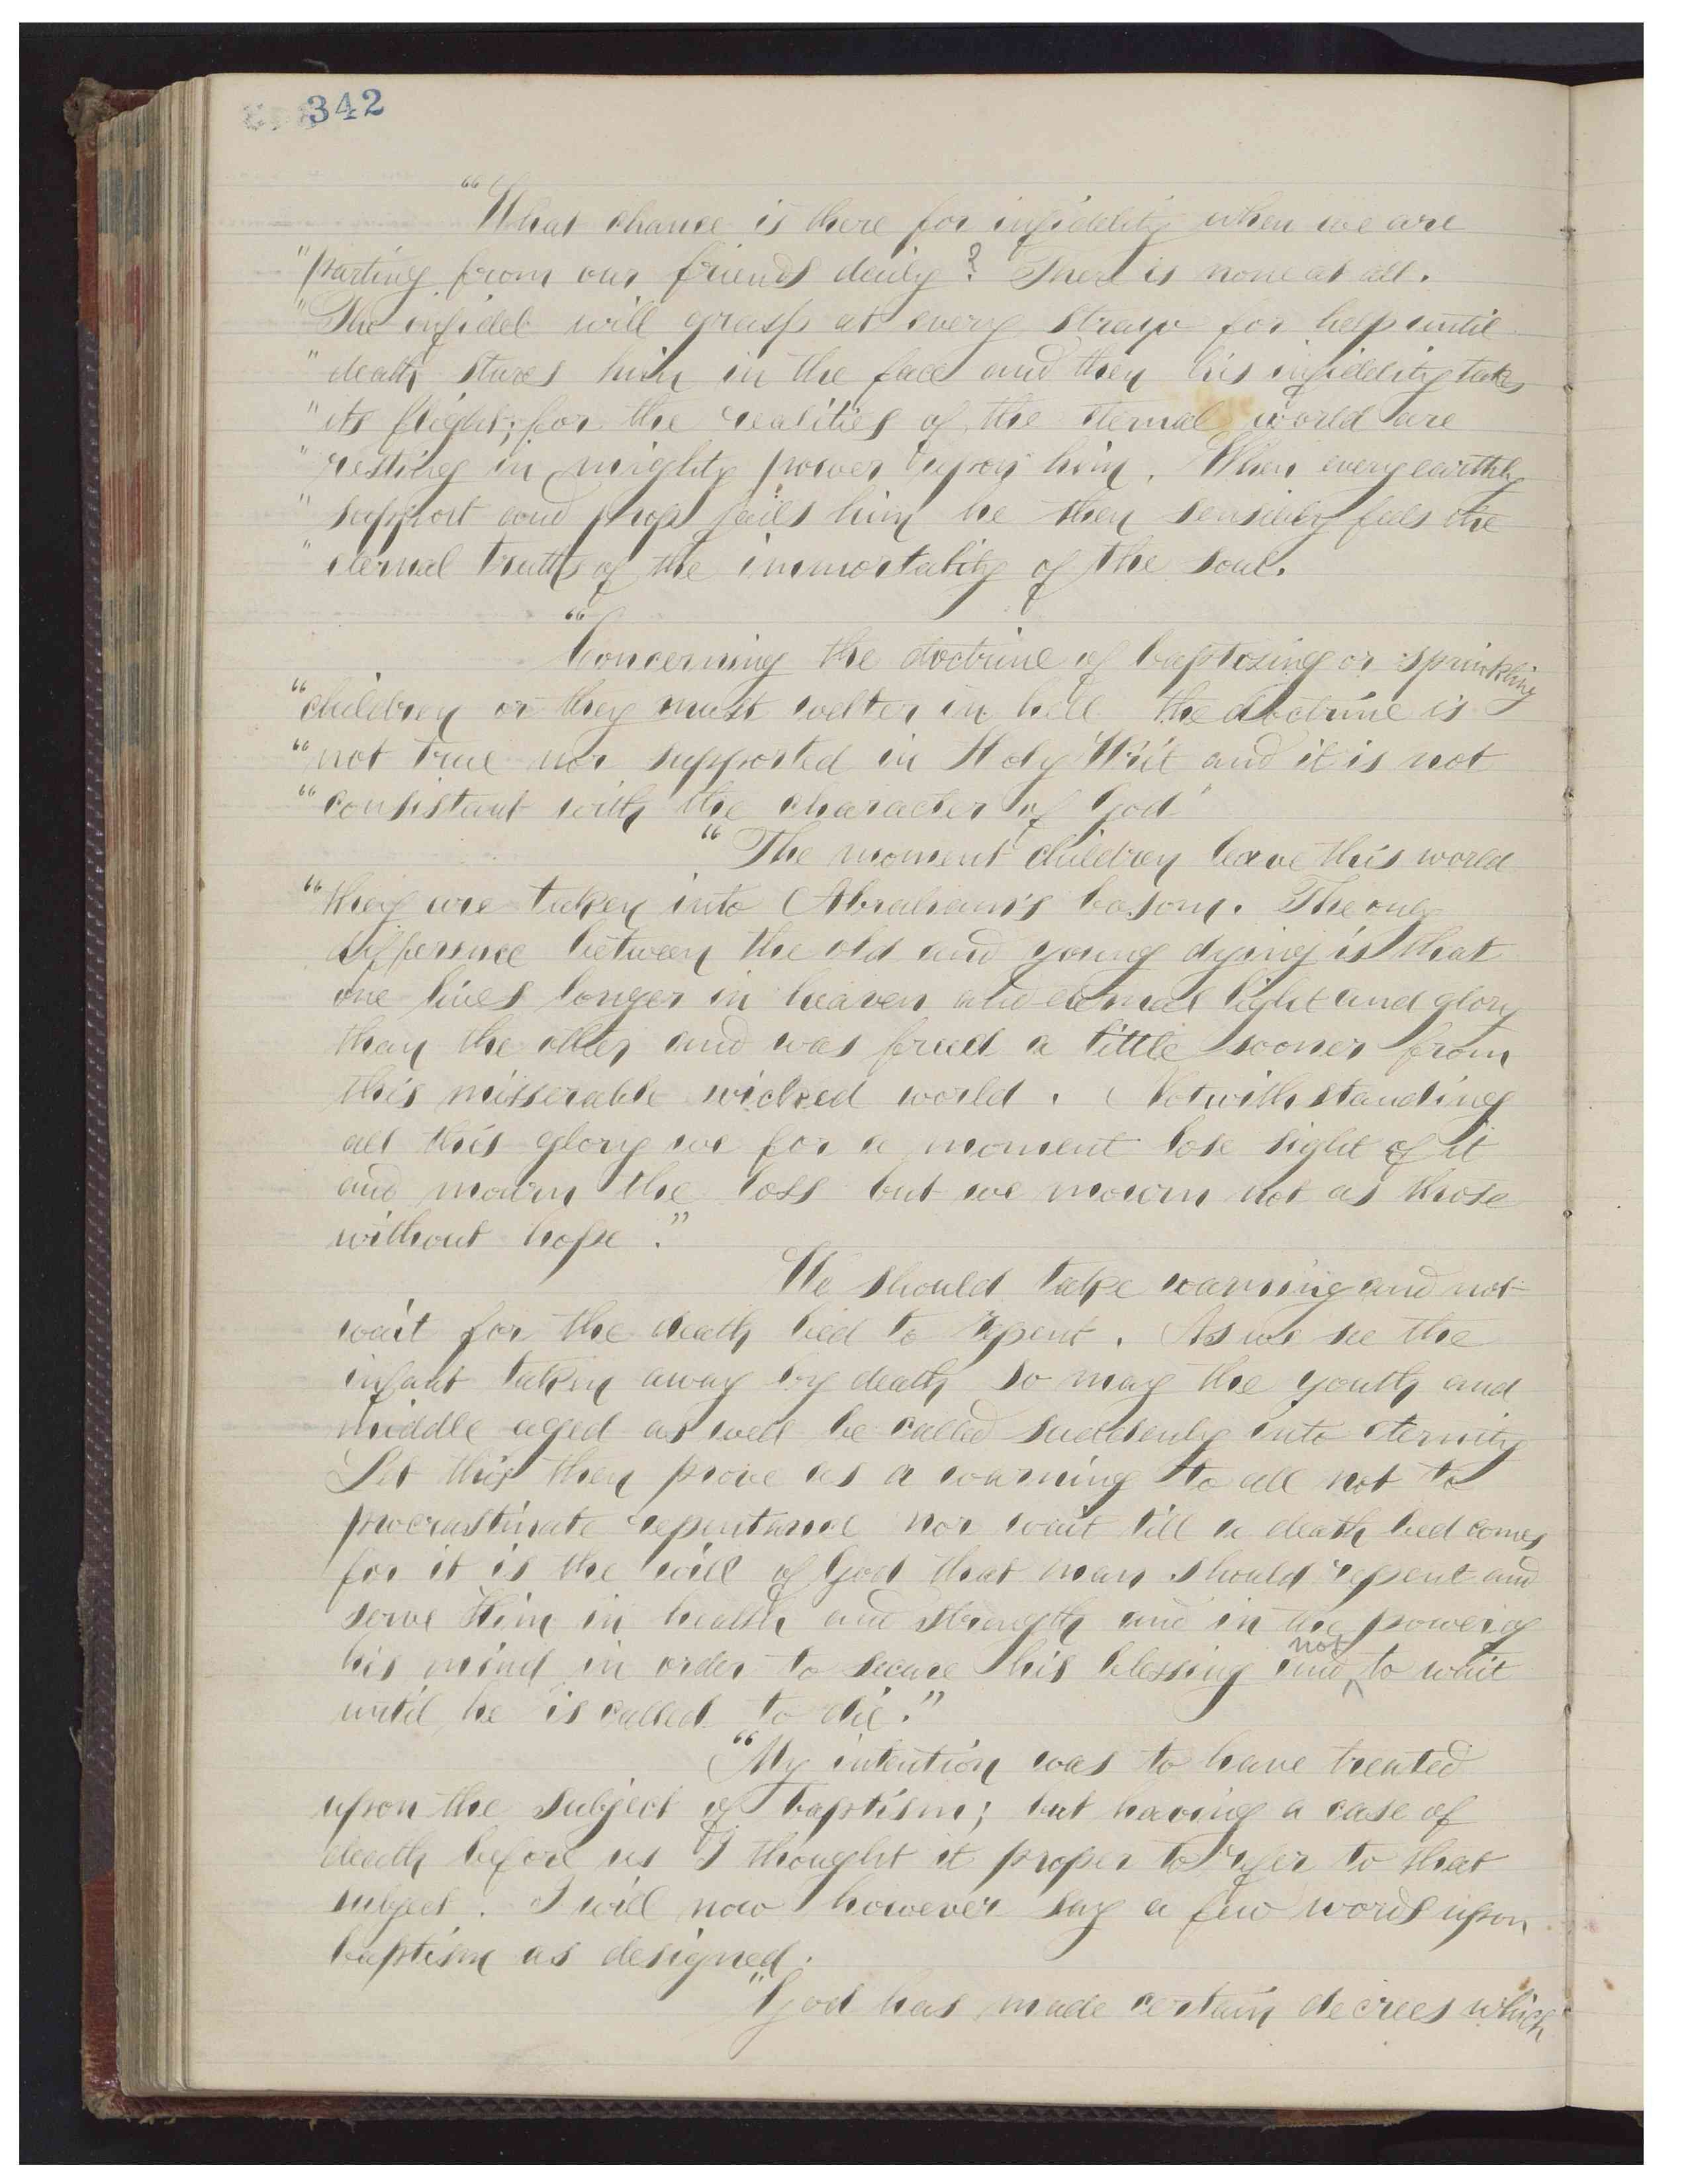 342
"What chance is there for infidelity when we are
"parting from our friends daily? There is none at all.
"The infidel will grasp at every straw for help until
"death stares him in the face and then his infidelity takes
"its flight; for the realities of the eternal world are
"resting in mighty power upon him. When every earthly
"support and prop fails him he then sensibly feels the
"eternal truths of the immortality of the soul.
"Concerning the doctrine of baptozing or sprinkling
"children or they must welter in hell the doctrine is
"not true nor supported in Holy Writ and it is not
"consistant with the character of God"
"The moment children leave this world
"they are taken into Abraham's bosom. The only
difference between the old and young dying is that
one lives longer in heaven and eternal light and glory
than the other and was freed a little sooner from
this misserable wicked world. Notwithstanding
all this glory we for a moment lose sight of it
and mourn the loss but we mourn not as those
without hope."
We should take warning and not
wait for the death bed to repent. As we see the
infant taken away by death so may the youth and
middle aged as well be called suddenly into eternity
Let this then prove as a warning to all not to
procrastinate repentance nor wait till a death bed comes
for it is the will of God that man should repent and
serve Him in health and strength and in the power of
his mind in order to secure his blessing and not to wait
until he is called to die."
"My intention was to have treated
upon the subject of baptism; but having a case of
death before us I thought it proper to refer to that
subject. I will now however say a few words upon
baptism as designed.
"God has made certain decrees which